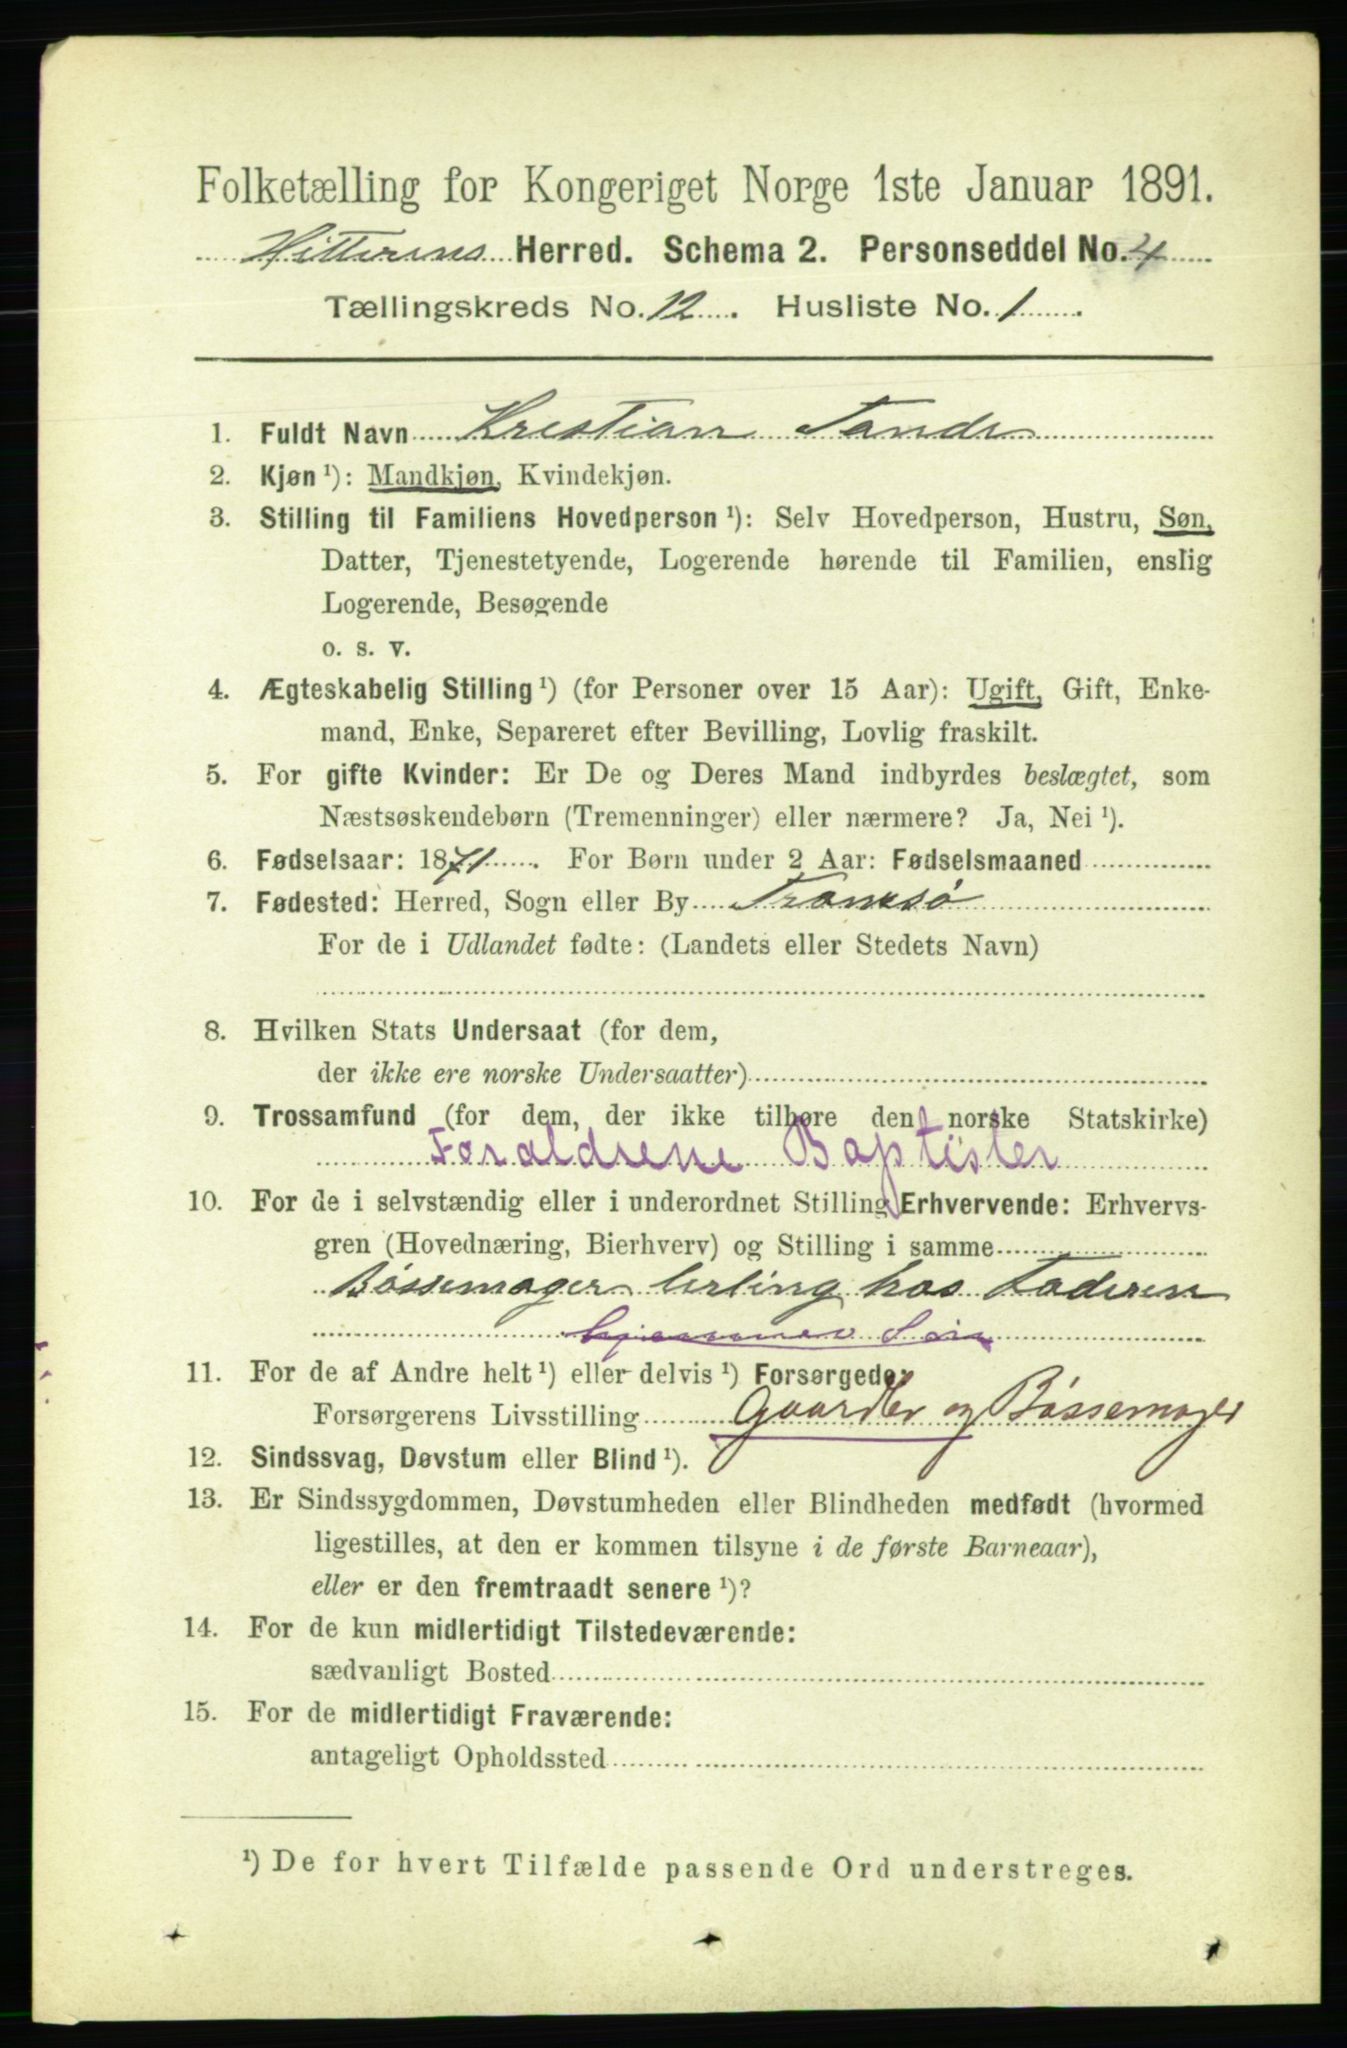 Folketælling for Kongeriget Norge 1ste Januar 1891.
Hitterens Herred. Schema 2. Personseddel No. 4
Tællingskreds No. 12. Husliste No. 1.
1. Fuldt Navn Kristian Tande
2. Kjøn ¹): Mandkjøn, Kvindekjøn.
3. Stilling til Familiens Hovedperson ¹): Selv Hovedperson, Hustru, Søn,
Datter, Tjenestetyende, Logerende hørende til Familien, enslig
Logerende, Besøgende
o. s. v.
4. Ægteskabelig Stilling ¹) (for Personer over 15 Aar): Ugift, Gift, Enke-
mand, Enke, Separeret efter Bevilling, Lovlig fraskilt.
5. For gifte Kvinder: Er De og Deres Mand indbyrdes beslægtet, som
Næstsøskendebørn (Tremenninger) eller nærmere? Ja, Nei ¹).
6. Fødselsaar: 1871. For Børn under 2 Aar: Fødselsmaaned
7. Fødested: Herred, Sogn eller By Tromsø
For de i Udlandet fødte: (Landets eller Stedets Navn)
8. Hvilken Stats Undersaat (for dem,
der ikke ere norske Undersaatter)
9. Trossamfund (for dem, der ikke tilhøre den norske Statskirke)
Foraldrene Baptister
10. For de i selvstændig eller i underordnet Stilling Erhvervende: Erhvervs-
gren (Hovednæring, Bierhverv) og Stilling i samme
Bøssemager lerling hos Faderen
hjemmev Søn
11. For de af Andre helt ¹) eller delvis ¹) Forsørgede,
Forsørgerens Livsstilling Gaardbr og Bøssemager
12. Sindssvag, Døvstum eller Blind ¹).
13. Er Sindssygdommen, Døvstumheden eller Blindheden medfødt (hvormed
ligestilles, at den er kommen tilsyne i de første Barneaar),
eller er den fremtraadt senere ¹)?
14. For de kun midlertidigt Tilstedeværende:
sædvanligt Bosted
15. For de midlertidigt Fraværende:
antageligt Opholdssted
¹) De for hvert Tilfælde passende Ord understreges.